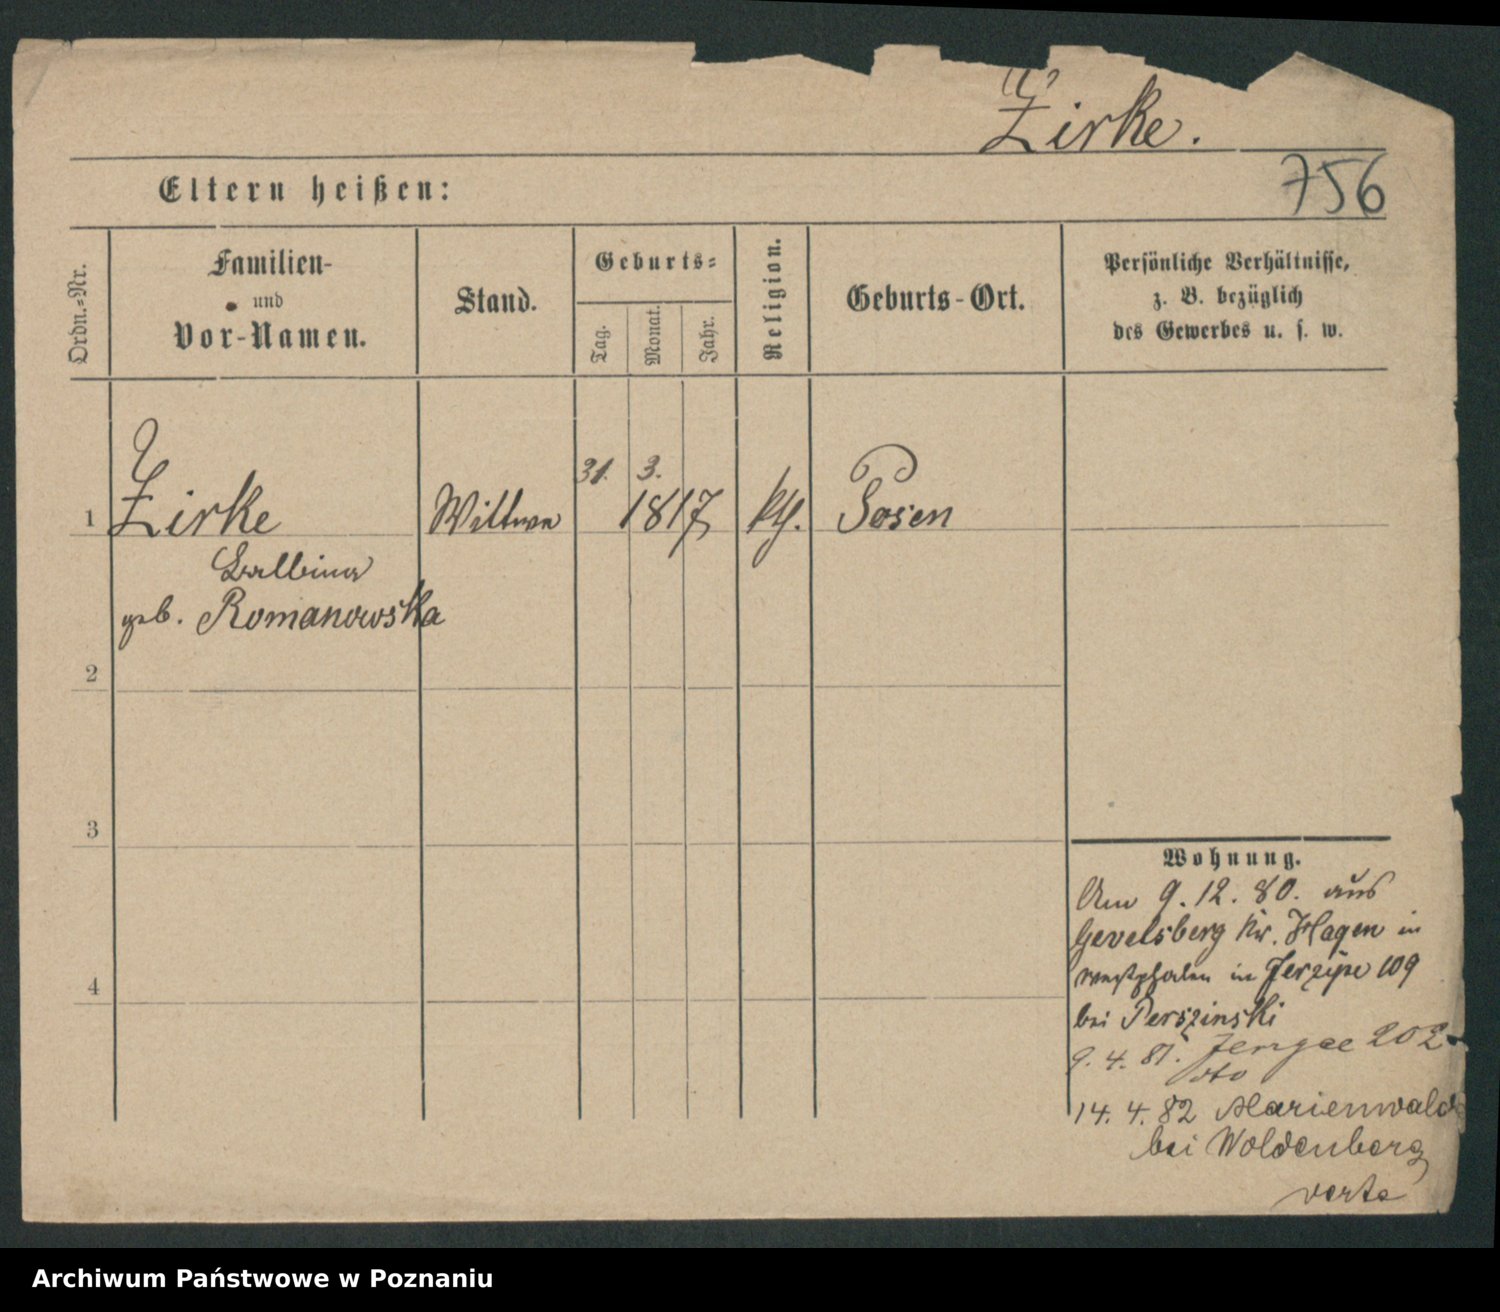 Zirke.
756
Eltern heißen:
Ordn.-Nr.
Familien-
und
Vor-Namen.
Stand.
Geburts-
Tag.
Monat.
Jahr.
Religion.
Geburts-Ort.
Persönliche Verhältnisse,
z. B. bezüglich
des Gewerbes u. s. w.
31. 3.
1 Zirke Wittwe 1817 kth. Posen
Balbina
geb. Romanowska
2
3
4
Wohnung.
Am 9. 12. 80. aus
Gevelsberg Kr. Hagen in
Westphalen in Jerzyce 109
bei Perszinski
9. 4. 81. 202
dto
14. 4. 82 Marienwalde
bei Woldenberg
verte
Archiwum Państwowe w Poznaniu